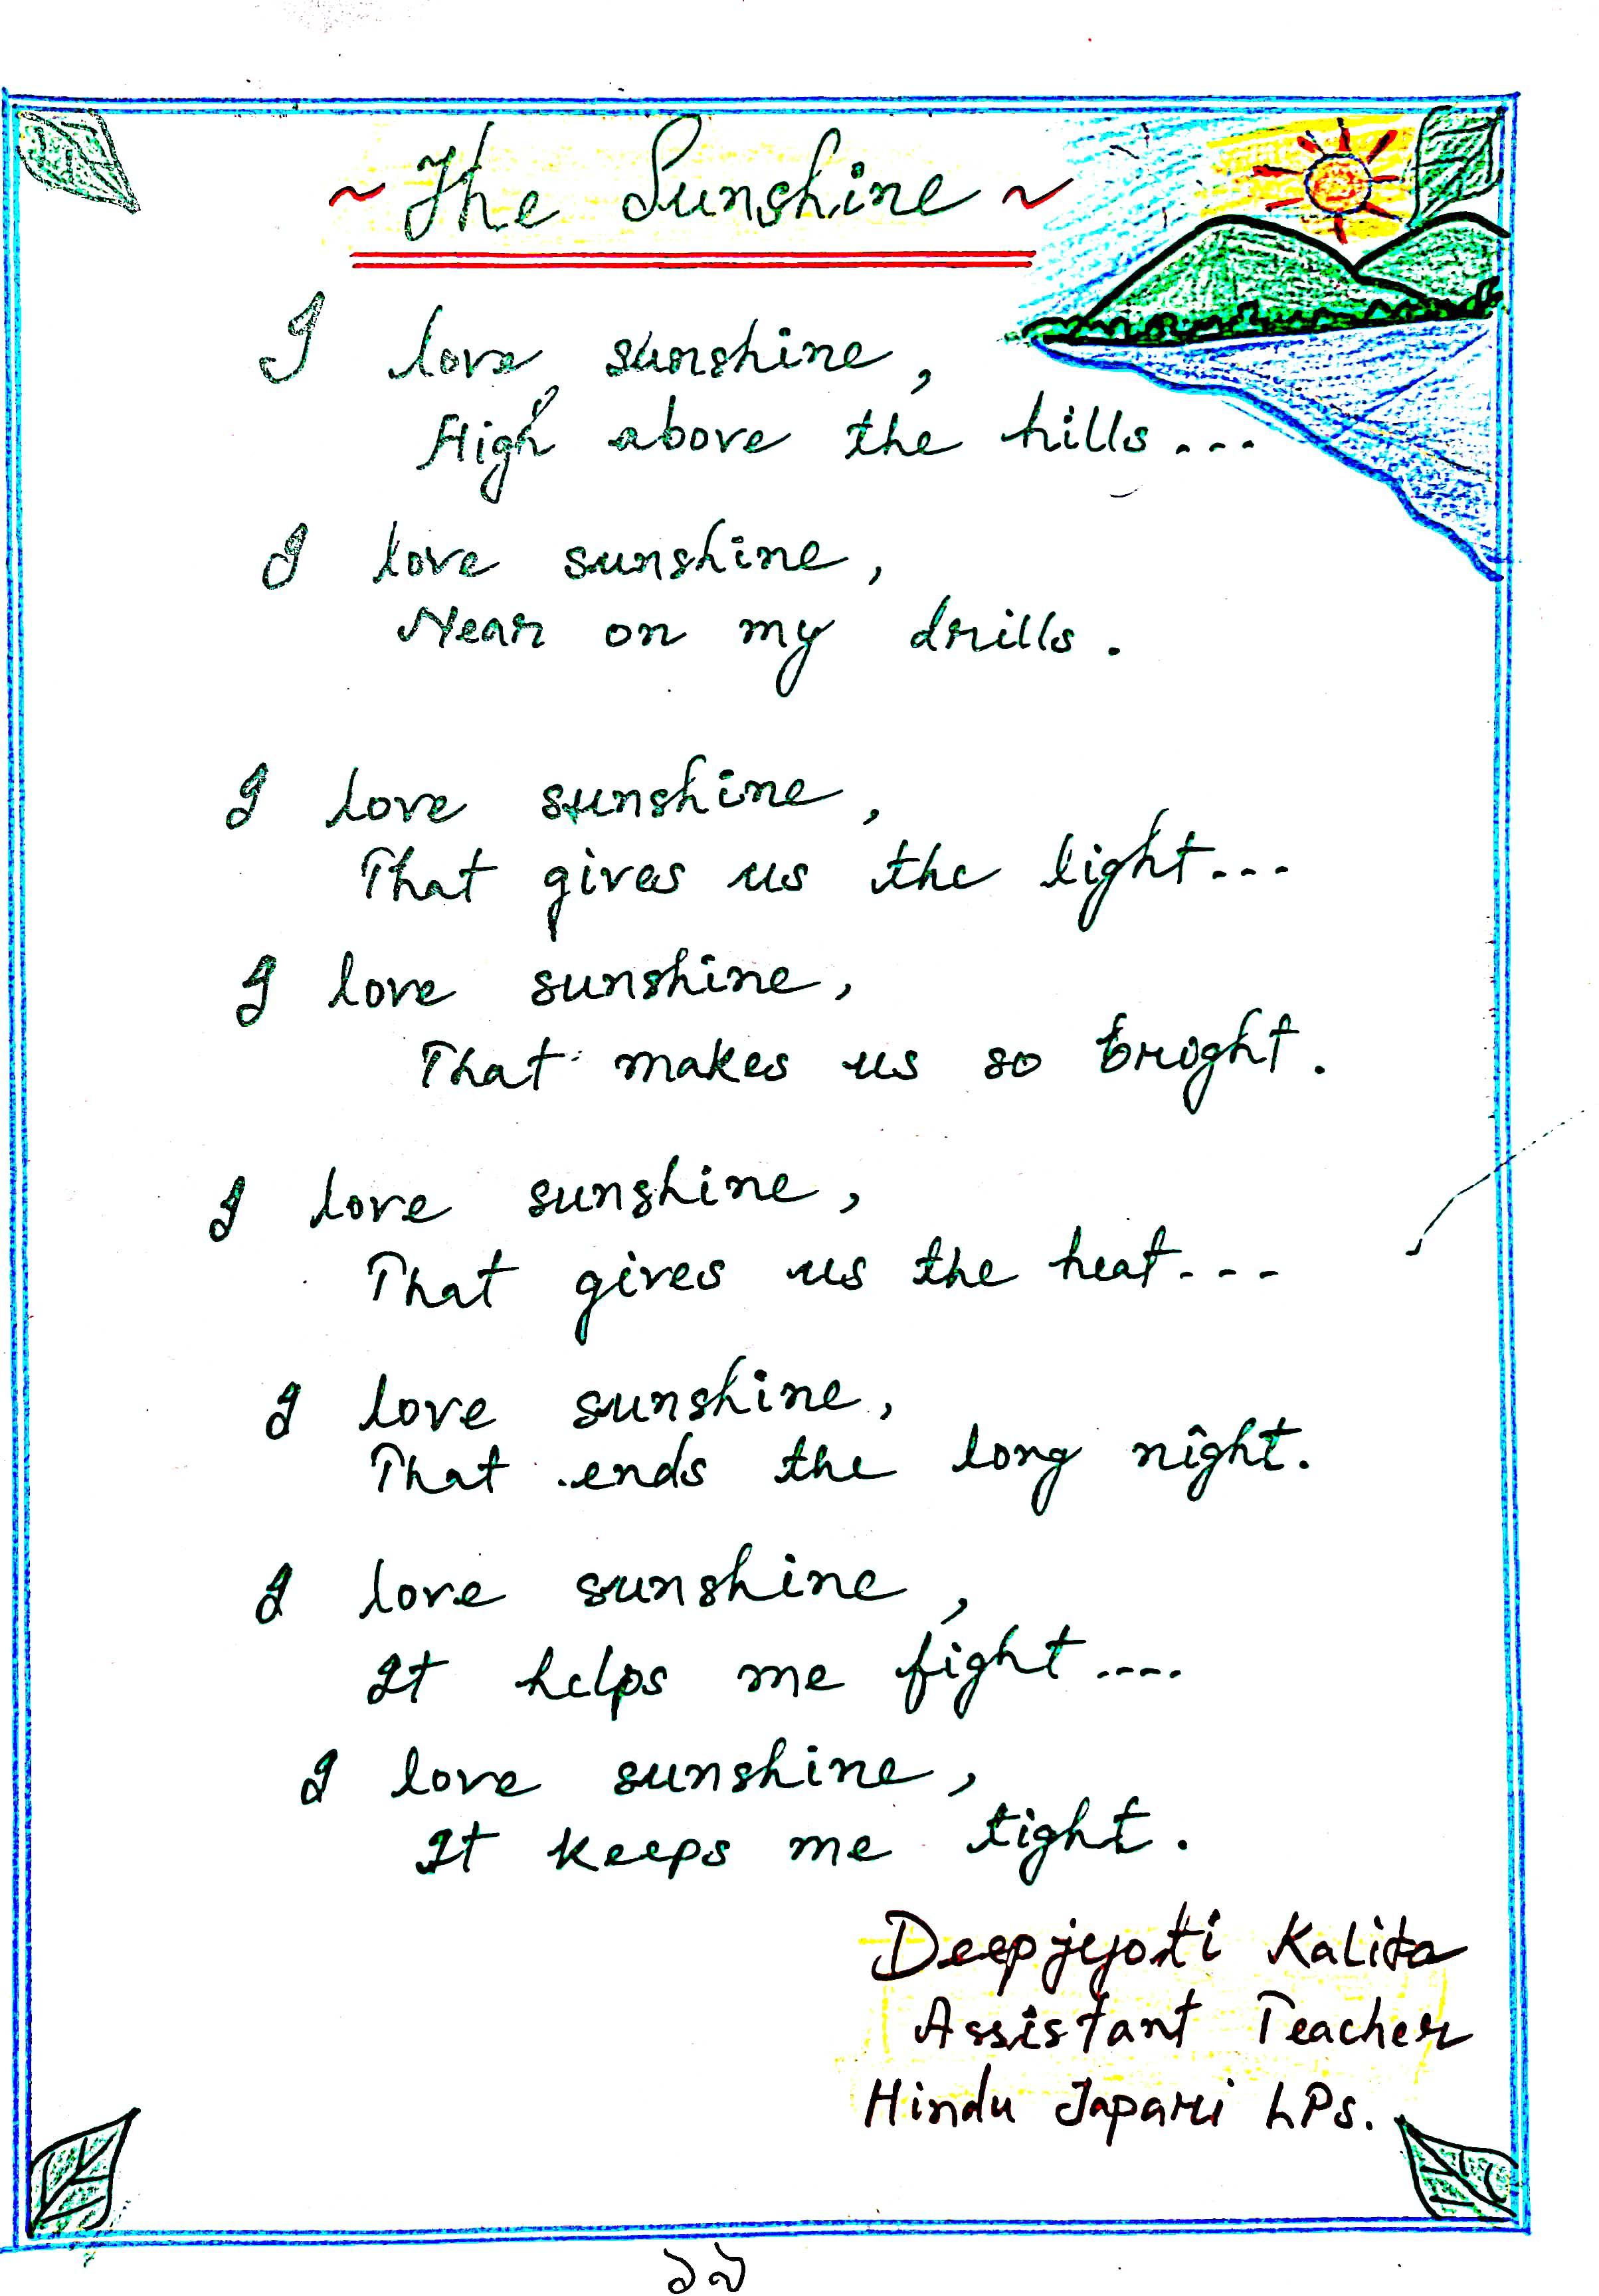 ~ The Sunshine ~
I love sunshine,
High above the hills...
I love sunshine,
Near on my drills.
I love sunshine,
That gives us the light...
I love sunshine,
That makes us so bright.
I love sunshine,
That gives us the heat...
I love sunshine,
That ends the long night.
I love sunshine,
It helps me fight....
I love sunshine,
It keeps me tight.
Deepjyoti Kalita
Assistant Teacher
Hindu Japari LPs.
১৯